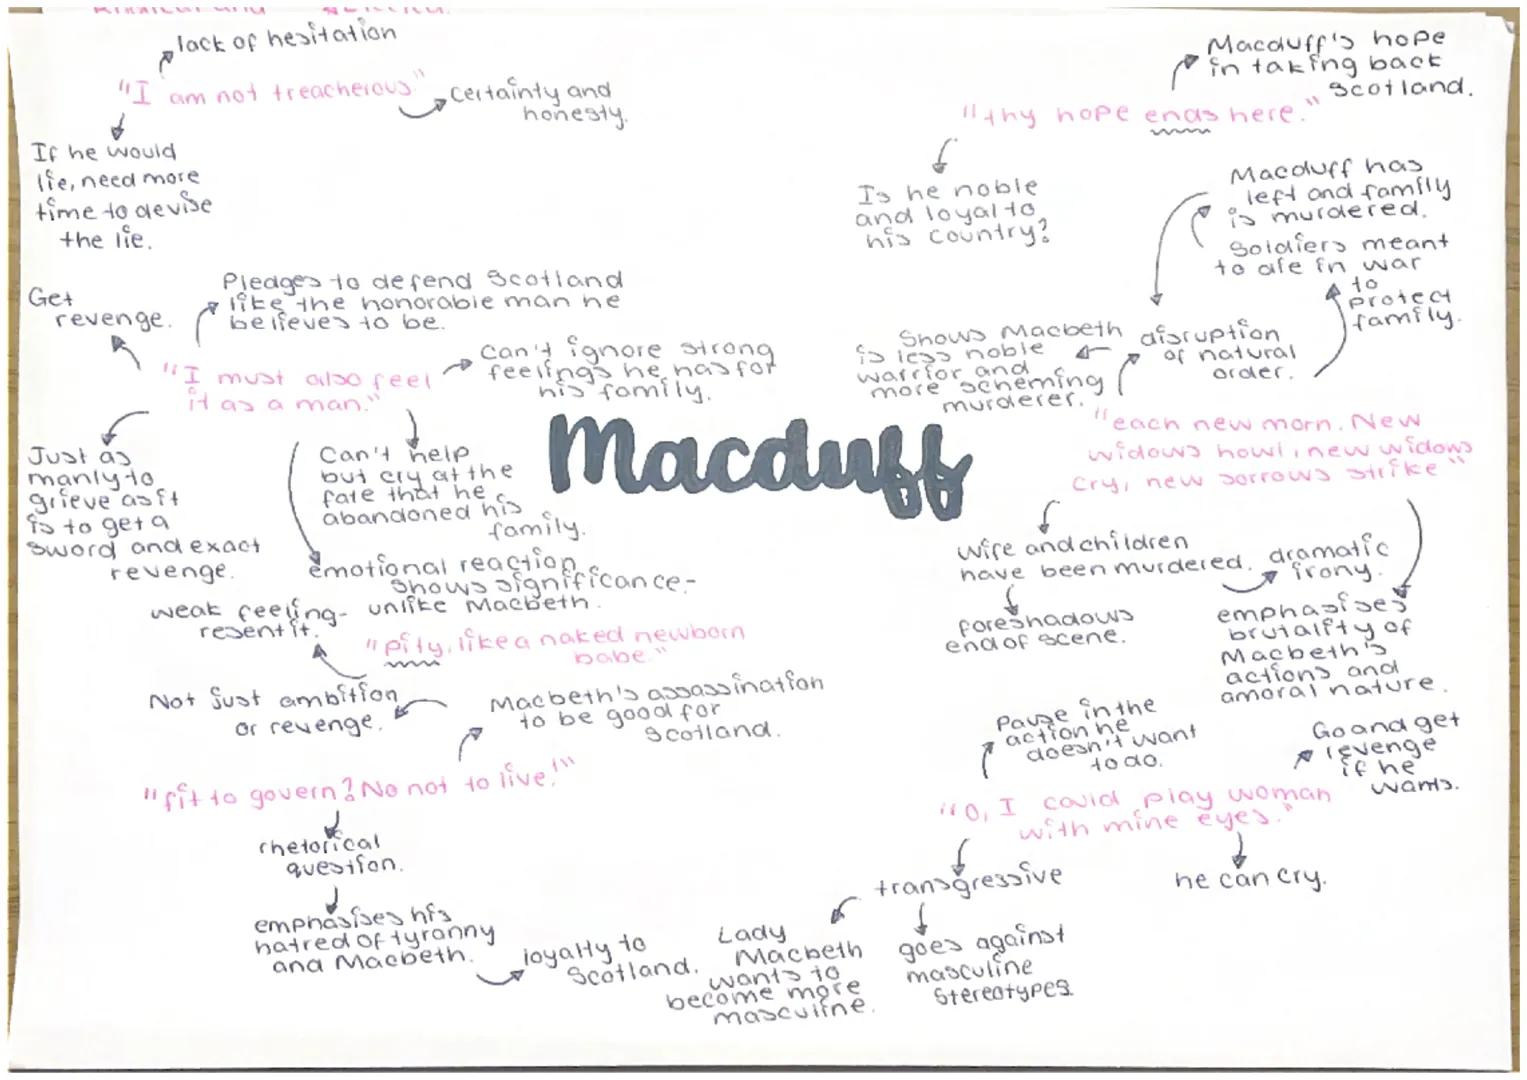 lack of hesitation
"I am not treacherous"
certainty and
honesty.
If he would
lie, need more
time to devise
the lie.
Get
revenge.
Pledges to defend Scotland
like the honorable man he
believes to be.
"I must also feel
it as a man."
Can't ignore strong
feelings he has for
his family.
Just as
manly to
grieve as it
is to get a
sword and exact
revenge.
Can't help
but cry at the
fate that he
abandoned his
family.
emotional reaction
shows significance-
unlike Macbeth.
weak feeling-
resent it.
"pity, like a naked newborn
babe."
Not just ambition
or revenge.
Macbeth's assassination
to be good for
Scotland.
"fit to govern? No not to live!"
rhetorical
question.
emphasises his
hatred of tyranny
and Macbeth.
loyalty to
Scotland.
Macduff
Macduff's hope
in taking back
Scotland.
"thy hope ends here."
Is he noble
and loyal to
his country?
Macduff has
left and family
is murdered.
Soldiers meant
to die in war
to
protect
family.
Shows Macbeth
is less noble
warrior and
more scheming
murderer.
disruption
of natural
order.
"each new morn. New
widows howl, new widows
cry, new sorrows strike"
Wife and children
have been murdered.
dramatic
irony.
foreshadows
end of scene.
emphasises
brutality of
Macbeth's
actions and
amoral nature.
Pause in the
action he
doesn't want
to do.
Go and get
revenge
if he
wants.
"O, I could play woman
with mine eyes."
transgressive
he can cry.
Lady
Macbeth
wants to
become more
masculine.
goes against
masculine
stereotypes.